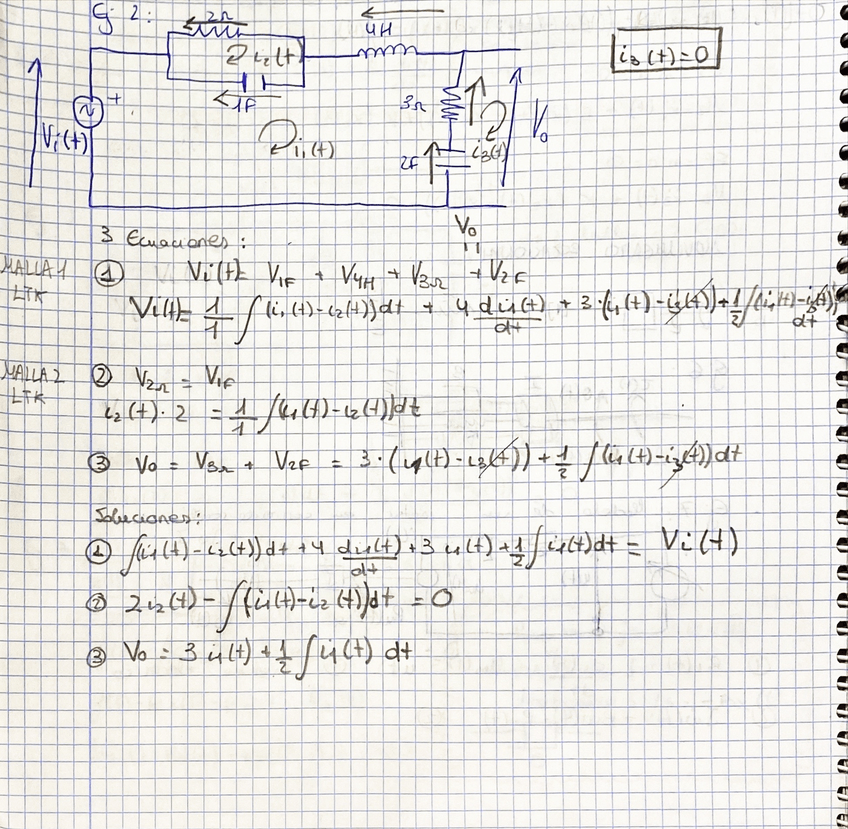 Ej 2:
2Ω
4H
i₂(t)
i₃(t)=0
1F
+
3Ω
V₀
Vi(t)
i₁(t)
2F
i₃(t)
3 Ecuaciones:
V₀
MALLA 1
LTK
① Vi(t)= V1F + V4H + V3Ω + V2F
Vi(t)= 1/1 ∫(i₁(t)-i₂(t))dt + 4 di₁(t)/dt + 3·(i₁(t)-i₃(t))+1/2∫(i₁(t)-i₃(t))dt
MALLA 2
LTK
② V2Ω = V1F
i₂(t)·2 = 1/1 ∫(i₁(t)-i₂(t))dt
③ V₀ = V3Ω + V2F = 3·(i₁(t)-i₃(t))+1/2 ∫(i₁(t)-i₃(t))dt
Soluciones:
① ∫(i₁(t)-i₂(t))dt+4 di₁(t)/dt+3 i₁(t)+1/2∫i₁(t)dt= Vi(t)
② 2i₂(t)-∫(i₁(t)-i₂(t))dt =0
③ V₀ = 3 i₁(t)+1/2∫i₁(t) dt